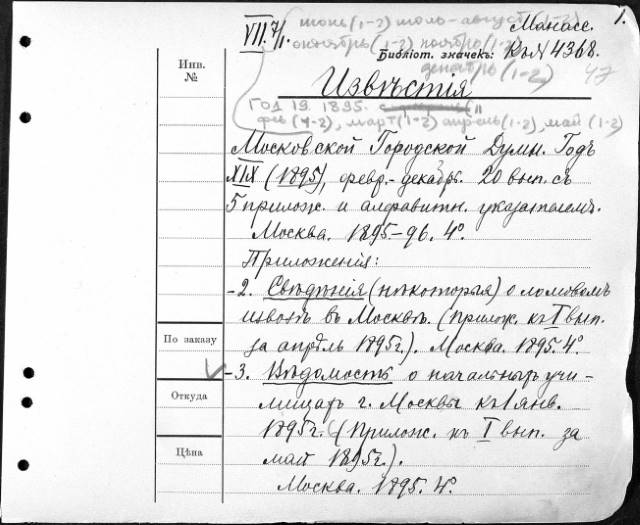 1.
VII.7/1.
июнь (1-2) июль-август (1-2)
Манасс.
октябрь (1-2) ноябрь (1-2)
Библіот. значекъ: КъN 4368.
декабрь (1-2)
47
Инв.
№
Извѣстія
Год 19. 1895.
фев (1-2), март (1-2) апрель (1-2), май (1-2)
Московской Городской Думы. Годъ
XIX (1895), февр.-декабрь. 20 вып. съ
5 прилож. и алфавитн. указателемъ.
Москва. 1895-96. 4°.
Приложенія:
-2. Свѣдѣнія (нѣкоторыя) о ломовомъ
извозѣ въ Москвѣ. (Прилож. къ I вып.
за апрѣль 1895г.). Москва. 1895. 4°.
По заказу
-3. Вѣдомость о начальныхъ учи-
Откуда
лищахъ г. Москвы къ 1 янв.
1895г. (Прилож. къ I вып. за
Цѣна
май 1895г.).
Москва. 1895. 4°.